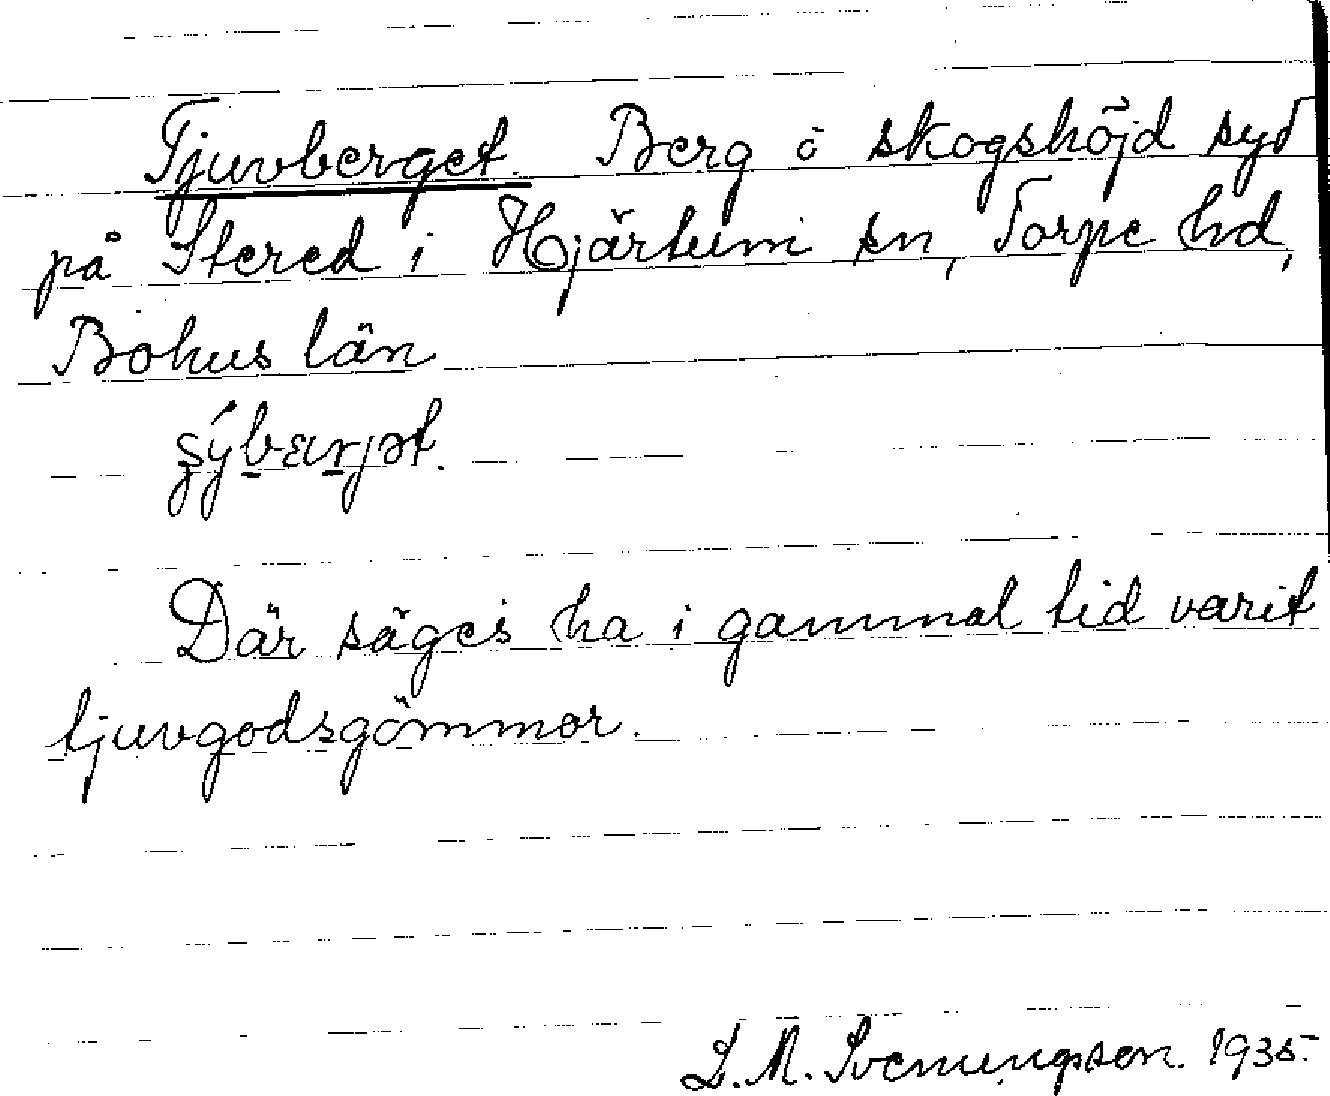 Tjuvberget. Berg o skogshöjd syd
på Stered i Hjärtum sn, Torpe hd,
Bohus län
Där säges ha i gammal tid varit
tjuvgodsgömmor.
D. M. Svenungsson 1935.